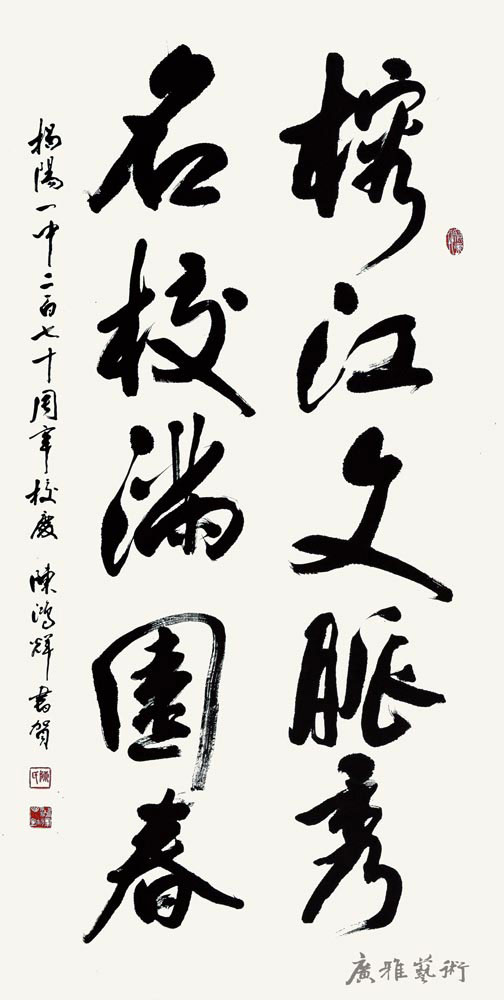 榕江文脈秀
名校滿園春
揭陽一中二百七十周年校慶 陳鴻輝書賀
廣雅藝術